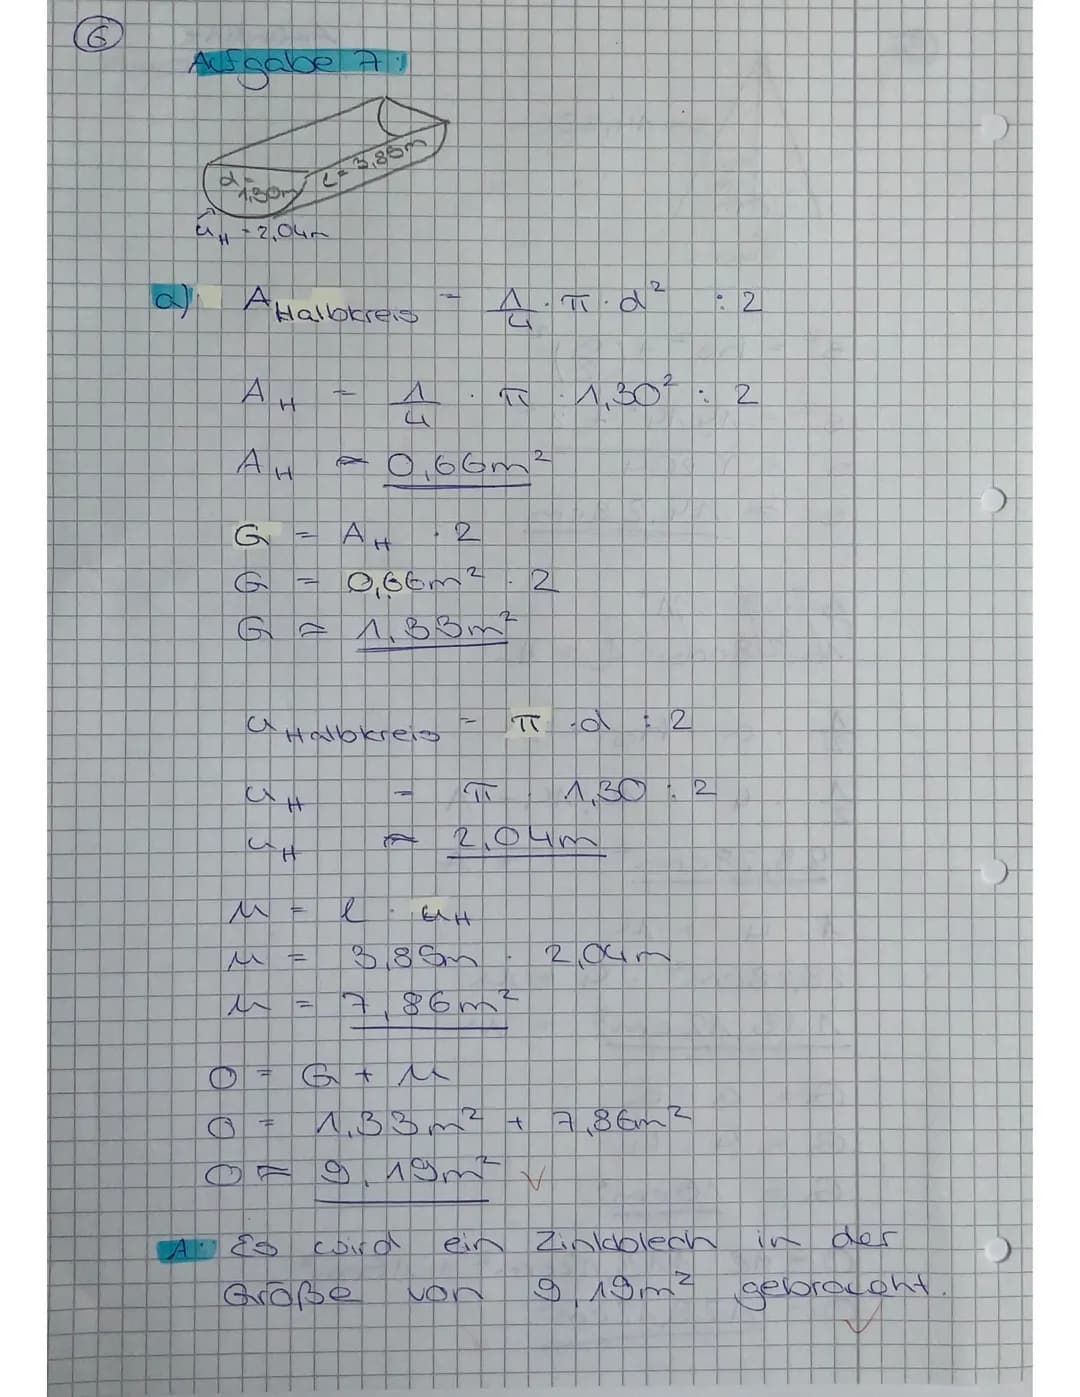 6
Aufgabe 7:
d=
1,30m
L= 3,85m
uH = 2,04m
a) AHalbkreis = 1/4 · π · d² : 2
AH = 1/4 · π · 1,30² : 2
AH ≈ 0,66m²
G = AH · 2
G = 0,66m² · 2
G ≈ 1,33m²
uHalbkreis = π · d : 2
uH = π · 1,30 : 2
uH ≈ 2,04m
M = l · uH
M = 3,85m · 2,04m
M = 7,86m²
O = G + M
O = 1,33m² + 7,86m²
O ≈ 9,19m² ✓
A: Es wird ein Zinkblech in der
Größe von 9,19m² gebraucht.